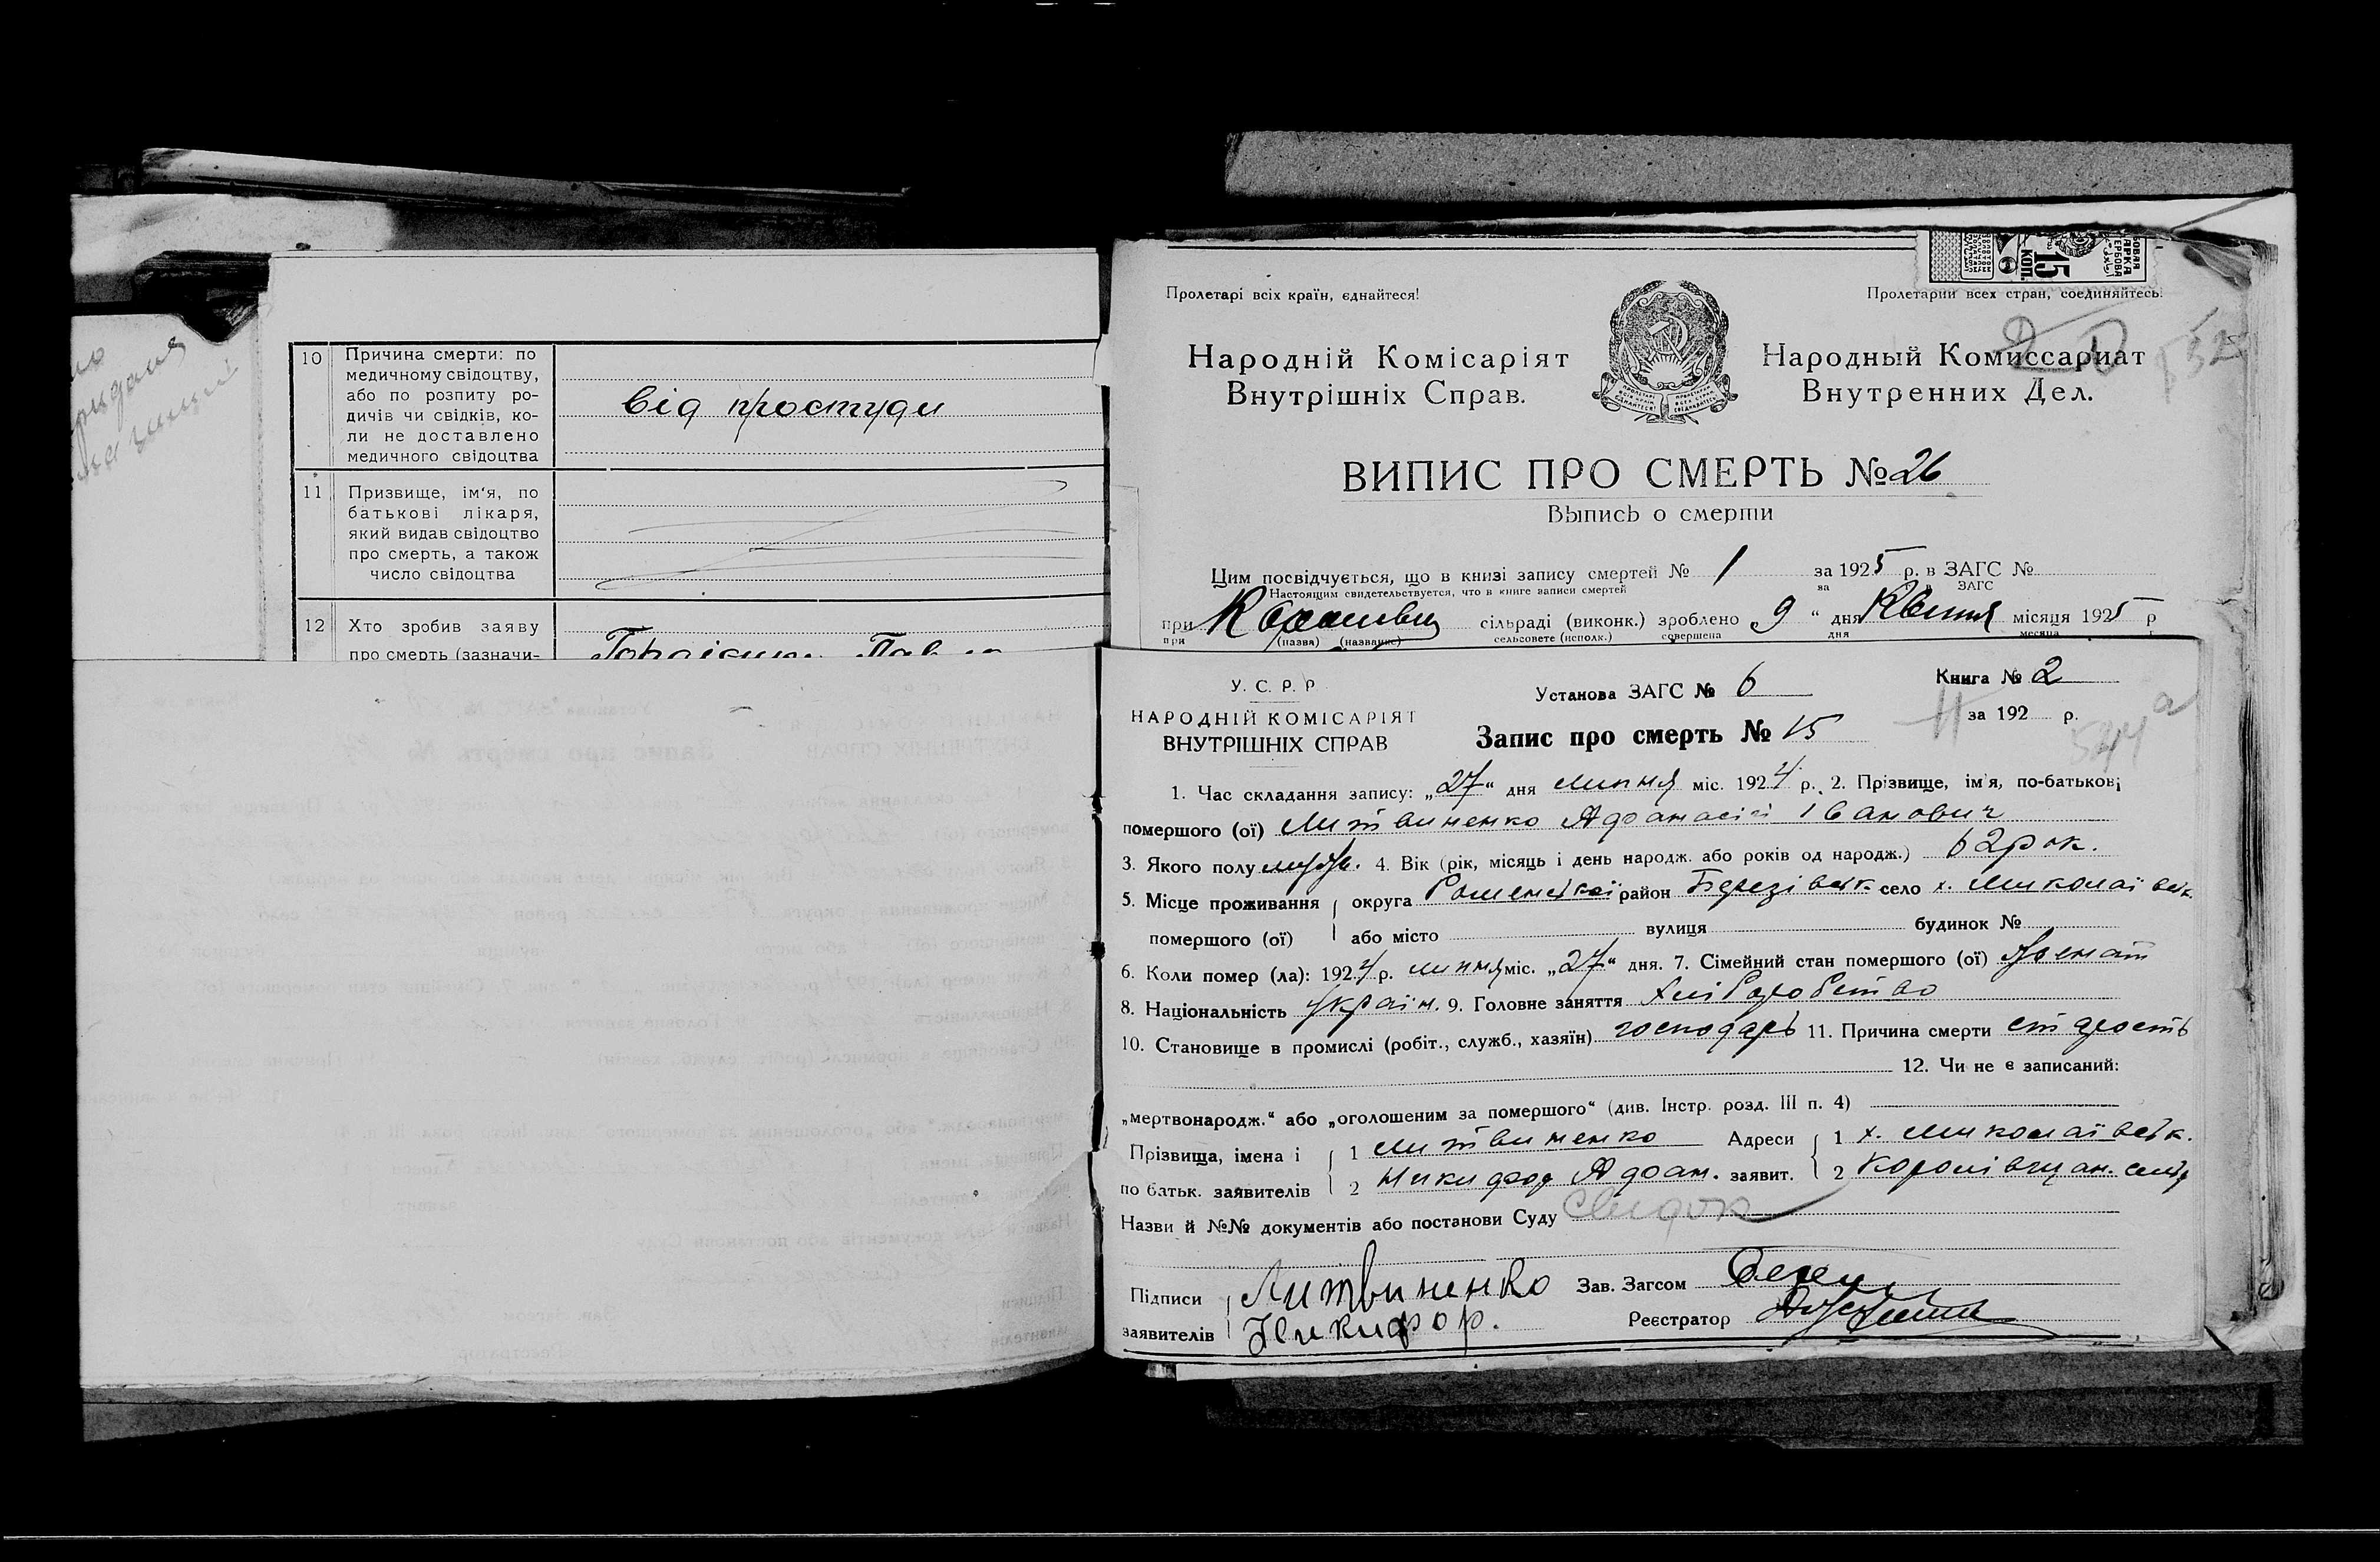 10 Причина смерти: по
медичному свідоцтву,
або по розпиту ро-
дичів чи свідків, ко-
ли не доставлено
медичного свідоцтва
від простуди
11 Призвище, ім'я, по
батькові лікаря,
який видав свідоцтво
про смерть, а також
число свідоцтва
12 Хто зробив заяву
про смерть (зазначи-
Пролетарі всіх країн, єднайтеся!
Пролетарии всех стран, соединяйтесь!
15 КОП.
Народній Комісаріят
Внутрішніх Справ.
Народный Комиссариат
Внутренних Дел.
ВИПИС ПРО СМЕРТЬ № 26
Выпись о смерти
Цим посвідчується, що в книзі запису смертей № 1 за 1925 р. в ЗАГС №
Настоящим свидетельствуется, что в книге записи смертей за в ЗАГС
при сільраді (виконк.) зроблено 9 " дня Квітня місяця 1925 р
при (назва) (название) сельсовете (исполк.) совершена дня месяца г.
У. С. Р. Р
НАРОДНІЙ КОМІСАРІЯТ
ВНУТРІШНІХ СПРАВ
Установа ЗАГС № 6
Книга № 2
за 192 р.
544 а
Запис про смерть № 15
1. Час складання запису: „27“ дня липня міс. 1924 р. 2. Прізвище, ім'я, по-батькові
помершого (ої) Литвиненко Афанасій Іванович
3. Якого полу муж. 4. Вік (рік, місяць і день народж. або років од народж.) 62 рок.
5. Місце проживання округа Роменської район село х. Миколаївськ.
помершого (ої) або місто вулиця будинок №
6. Коли помер (ла): 1924 р. липня міс. „27“ дня. 7. Сімейний стан помершого (ої) женат
8. Національність україн. 9. Головне заняття Хліборобство
10. Становище в промислі (робіт., служб., хазяїн) господарь 11. Причина смерти старость
12. Чи не є записаний:
„мертвонародж.“ або „оголошеним за помершого“ (див. Інстр. розд. III п. 4)
Прізвища, імена і 1 Литвиненко Адреси 1 х. Миколаївськ.
по батьк. заявителів 2 Никифор Афан. заявит. 2 Коровинцян.
Назви й №№ документів або постанови Суду Свидок
Підписи Литвиненко Зав. Загсом
заявителів Никифор. Реєстратор